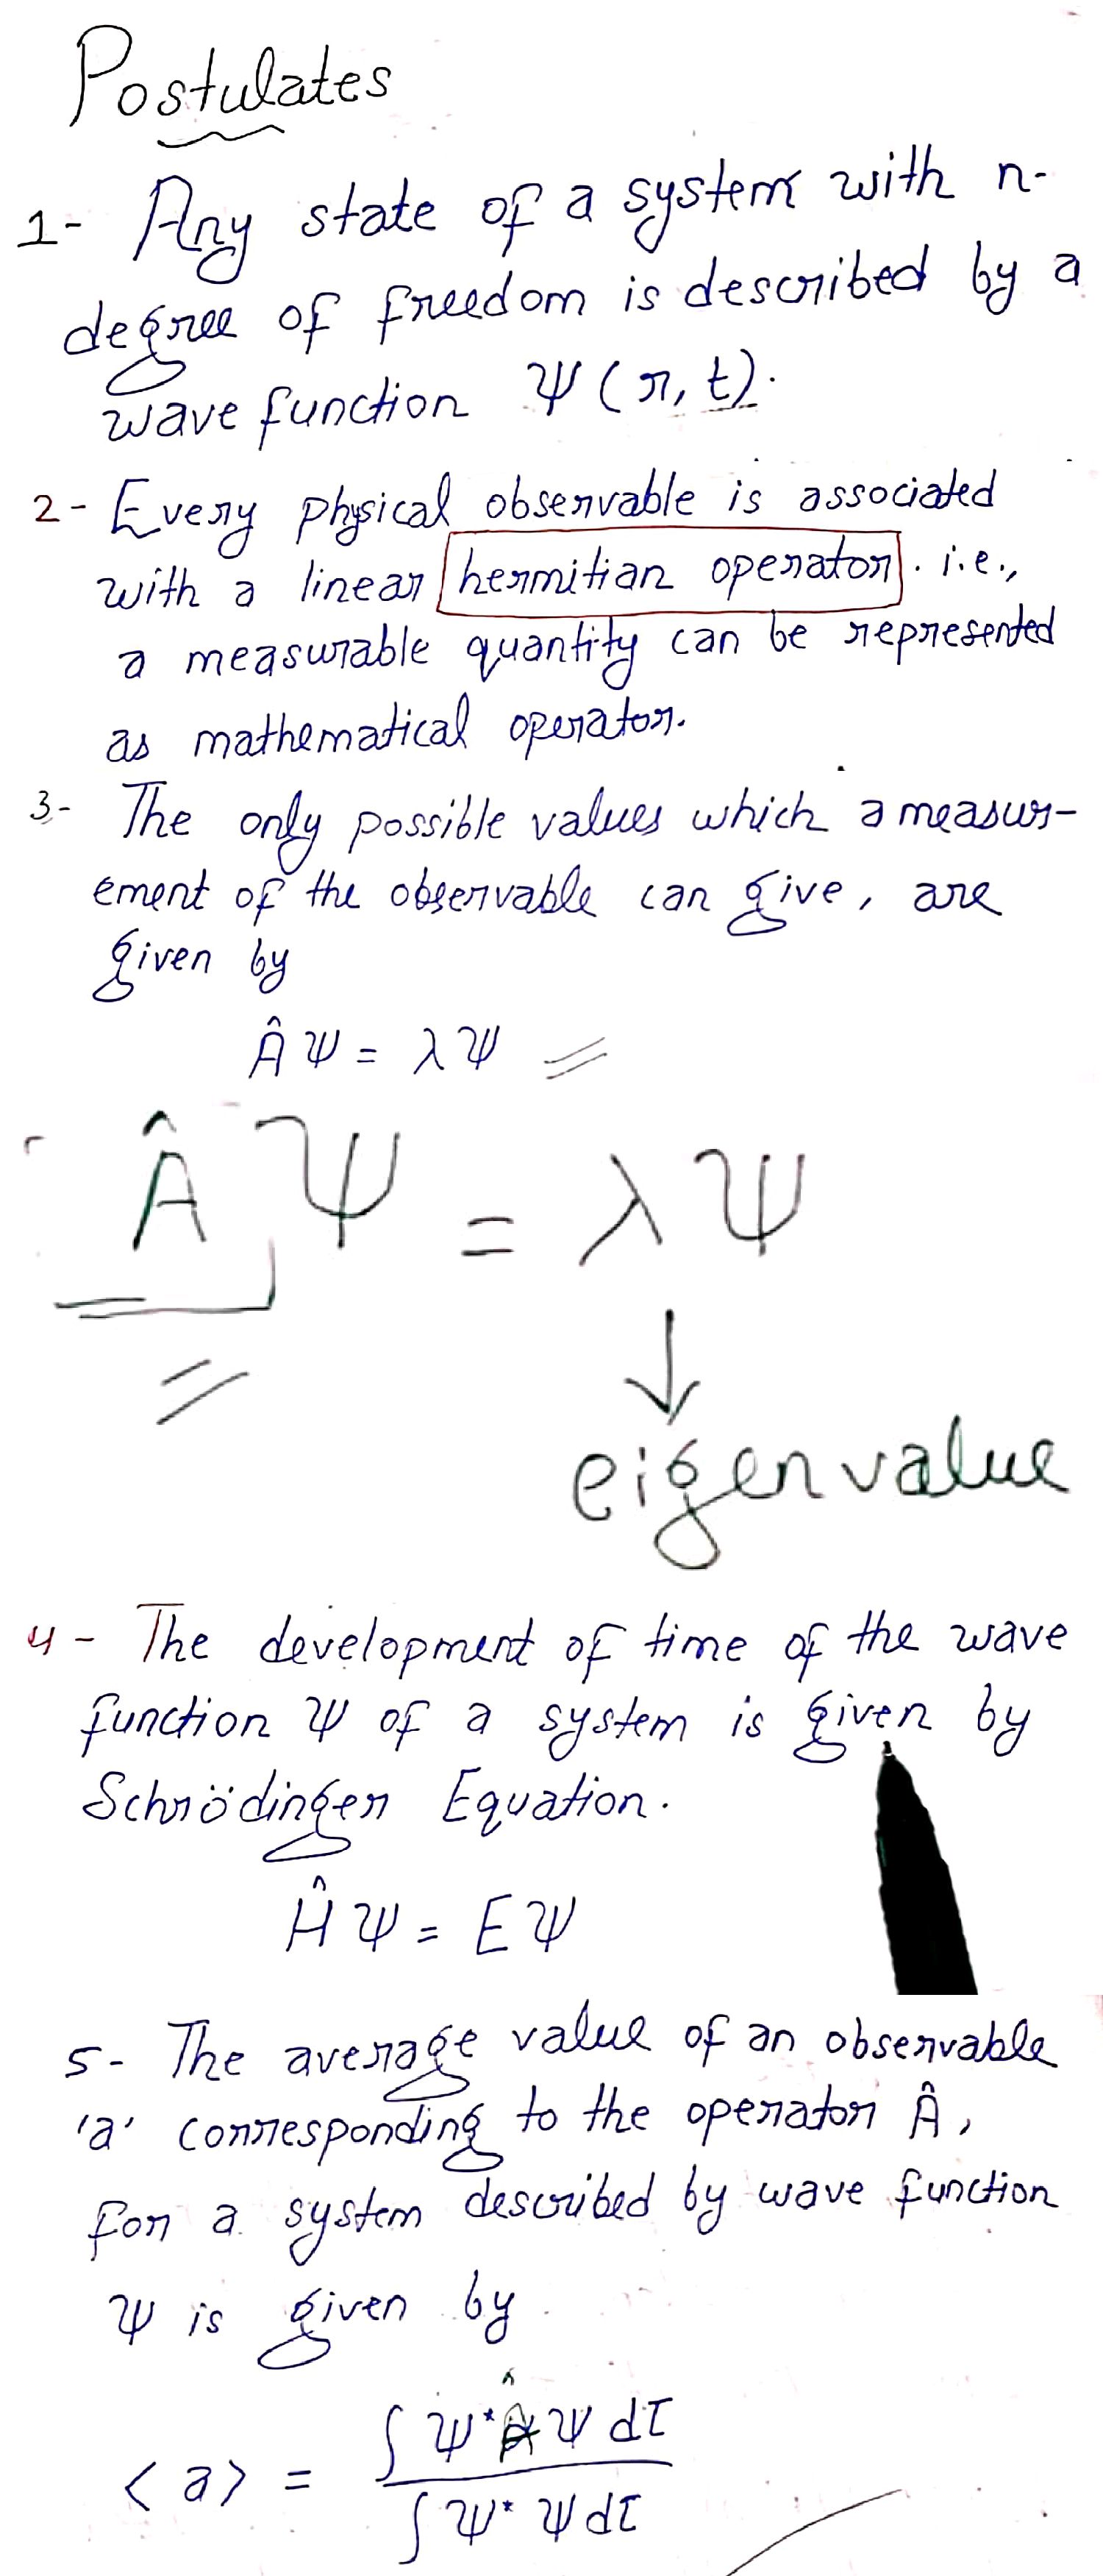 Postulates
1- Any state of a system with n-
degree of freedom is described by a
wave function Ψ(r, t).
2- Every physical observable is associated
with a linear hermitian operator. i.e.,
a measurable quantity can be represented
as mathematical operator.
3- The only possible values which a measur-
ement of the observable can give, are
given by
Â Ψ = λ Ψ
Â Ψ = λ Ψ
↓
eigenvalue
4- The development of time of the wave
function Ψ of a system is given by
Schrödinger Equation.
Ĥ Ψ = E Ψ
5- The average value of an observable
'a' corresponding to the operator Â,
for a system described by wave function
Ψ is given by
<a> = ∫ Ψ* Â Ψ dτ
∫ Ψ* Ψ dτ